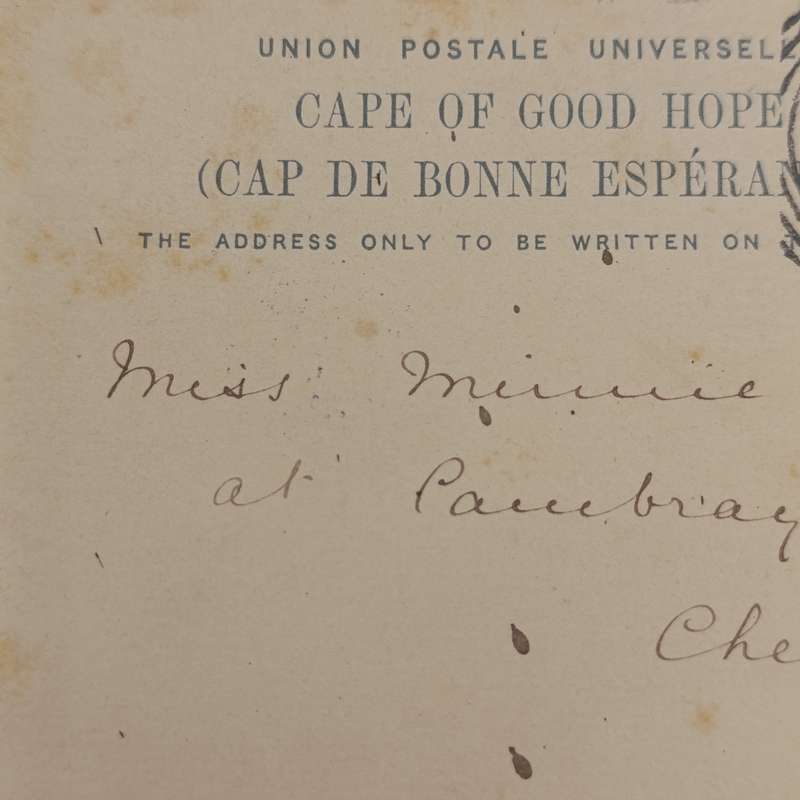 UNION POSTALE UNIVERSELL
CAPE OF GOOD HOPE
(CAP DE BONNE ESPÉRAN
THE ADDRESS ONLY TO BE WRITTEN ON T
Miss Minnie
at Cambray
Che